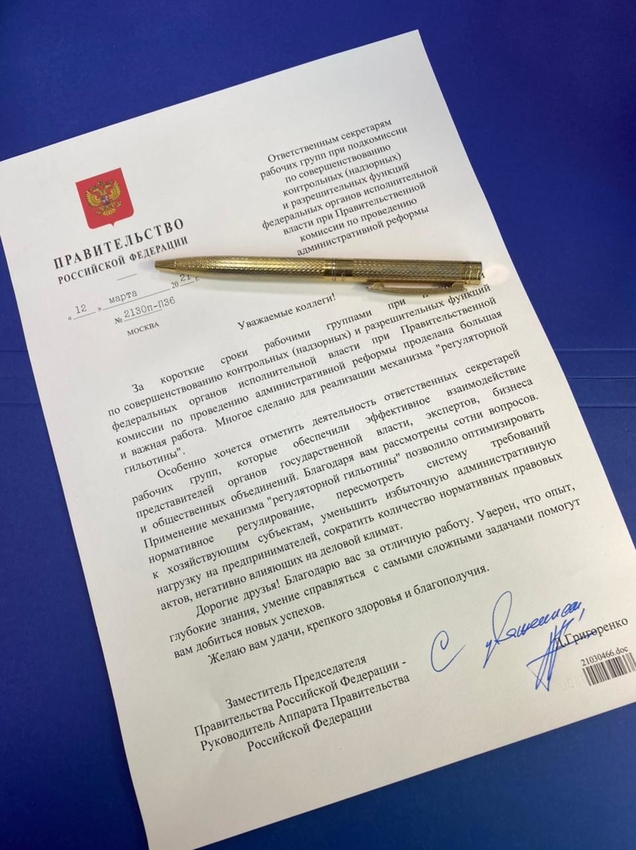 Ответственным секретарям
рабочих групп при подкомиссии
по совершенствованию
контрольных (надзорных)
и разрешительных функций
федеральных органов исполнительной
власти при Правительственной
комиссии по проведению
административной реформы
ПРАВИТЕЛЬСТВО
РОССИЙСКОЙ ФЕДЕРАЦИИ
« 12 » марта 2021
№ 2130п-П36
МОСКВА
Уважаемые коллеги!
За короткие сроки рабочими группами при
по совершенствованию контрольных (надзорных) и разрешительных функций
федеральных органов исполнительной власти при Правительственной
комиссии по проведению административной реформы проделана большая
и важная работа. Многое сделано для реализации механизма "регуляторной
гильотины".
Особенно хочется отметить деятельность ответственных секретарей
рабочих групп, которые обеспечили эффективное взаимодействие
представителей органов государственной власти, экспертов, бизнеса
и общественных объединений. Благодаря вам рассмотрены сотни вопросов.
Применение механизма "регуляторной гильотины" позволило оптимизировать
нормативное регулирование, пересмотреть систему требований
к хозяйствующим субъектам, уменьшить избыточную административную
нагрузку на предпринимателей, сократить количество нормативных правовых
актов, негативно влияющих на деловой климат.
Дорогие друзья! Благодарю вас за отличную работу. Уверен, что опыт,
глубокие знания, умение справляться с самыми сложными задачами помогут
вам добиться новых успехов.
Желаю вам удачи, крепкого здоровья и благополучия.
С уважением,
Заместитель Председателя
Правительства Российской Федерации -
Руководитель Аппарата Правительства
Российской Федерации
Д.Григоренко
21030466.doc